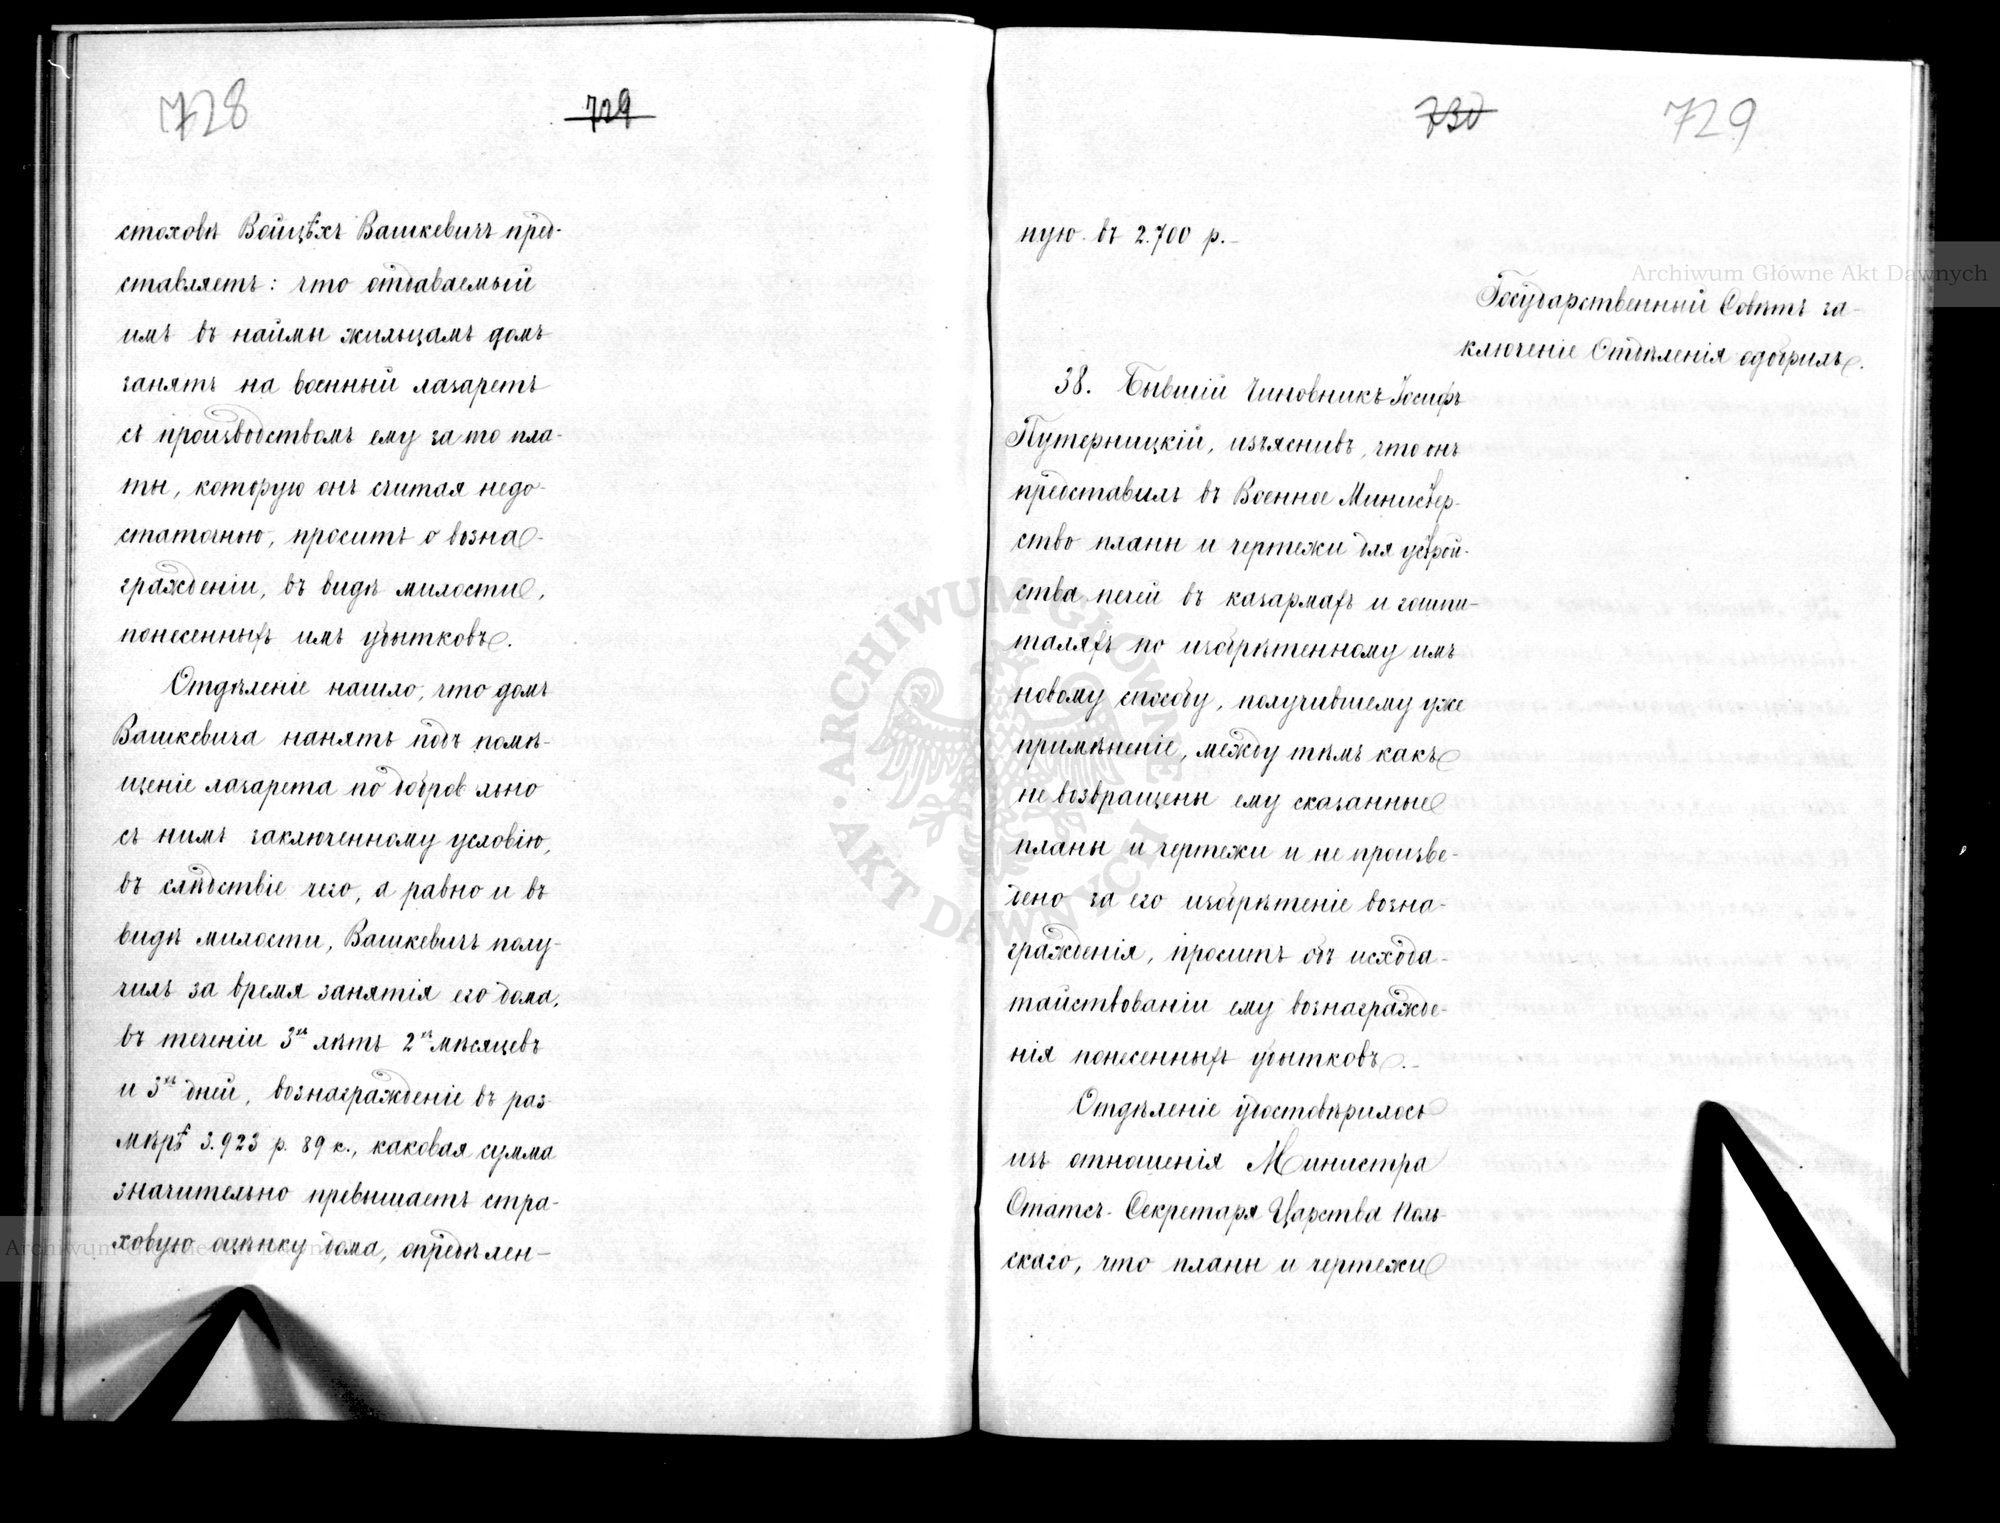 728
729
стоховѣ Войцѣхъ Вашкевичъ пред-
ставляетъ: что отдаваемый
имъ въ наймы жильцамъ домъ
занятъ на военный лазаретъ
съ производствомъ ему за то пла-
ты, которую онъ считая недо-
статочною, проситъ о возна-
гражденіи, въ видѣ милости,
понесенныхъ имъ убытковъ.
Отдѣленіе нашло, что домъ
Вашкевича нанятъ подъ помѣ-
щеніе лазарета по добровольно
съ нимъ заключенному условію,
въ слѣдствіе чего, а равно и въ
видѣ милости, Вашкевичъ полу-
чилъ за время занятія его дома,
въ теченіи 3хъ лѣтъ 2хъ мѣсяцевъ
и 3хъ дней, вознагражденіе въ раз-
мѣрѣ 3.923 р. 89 к., каковая сумма
значительно превышаетъ стра-
ховую оцѣнку дома, опредѣлен-
730
729
ную въ 2.700 р.
Государственный Совѣтъ за-
ключеніе Отдѣленія одобрилъ.
38. Бывшій Чиновникъ Іосифъ
Путерницкій, изъяснивъ, что онъ
представилъ въ Военное Министер-
ство планы и чертежи для устрой-
ства печей въ казармахъ и гошпи-
таляхъ по изобрѣтенному имъ
новому способу, получившему уже
примѣненіе, между тѣмъ какъ
не возвращены ему сказанные
планы и чертежи и не произве-
дено за его изобрѣтеніе возна-
гражденія, проситъ объ исхода-
тайствованіи ему вознагражде-
нія понесенныхъ убытковъ.
Отдѣленіе удостовѣрилось
изъ отношенія Министра
Статсъ-Секретаря Царства Поль-
скаго, что планы и чертежи
Archiwum Główne Akt Dawnych
ARCHIWUM GŁÓWNE AKT DAWNYCH